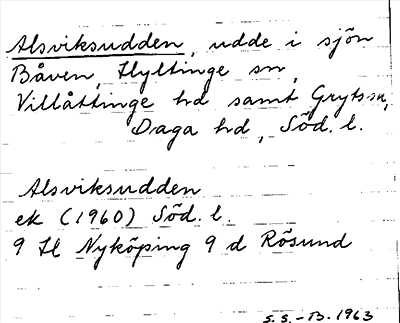 Alsviksudden, udde i sjön
Båven, Hyltinge sn,
Villåttinge hd samt Gryts sn,
Daga hd, Söd. l.
Alsviksudden
ek (1960) Söd. l.
9 H Nyköping 9 d Rösund
S.S.-B. 1963